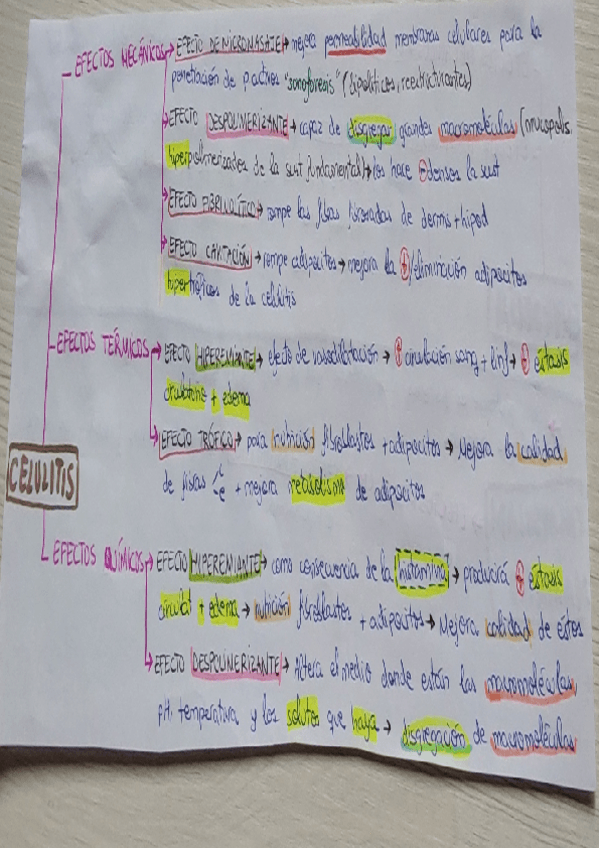 EFECTOS MECÁNICOS → EFECTO DE MICROMASAJE → mejora permeabilidad membranas celulares para la
penetración de p.activos "sonoforesis" (lipolíticos, reestructurantes)
→ EFECTO DESPOLIMERIZANTE → capaz de disgregar grandes macromoléculas (mucopolis.
hiperpolimerizados de la sust fundamental) → los hace densos la sust
→ EFECTO FIBRINOLÍTICO → rompe las fibras de dermis + hipod
→ EFECTO CAVITACIÓN → rompe adipocitos → mejora la /eliminación adipocitos
hipertróficos de la celulitis
EFECTOS TÉRMICOS → EFECTO HIPEREMIANTE → efecto de vasodilatación → ↑ circulación sang + linf → éxtasis
circulatorio + edema
→ EFECTO TRÓFICO → para nutrición fibroblastos + adipocitos → Mejora la calidad
de fibras + mejora metabolismo de adipocitos
CELULITIS
EFECTOS QUÍMICOS → EFECTO HIPEREMIANTE → como consecuencia de la histamina → producirá éxtasis
+ edema → nutrición fibroblastos + adipocitos → Mejora calidad de estos
→ EFECTO DESPOLIMERIZANTE → Altera el medio donde están las macromoléculas
pH, temperatura y los solutos que haya → disgregación de macromoléculas